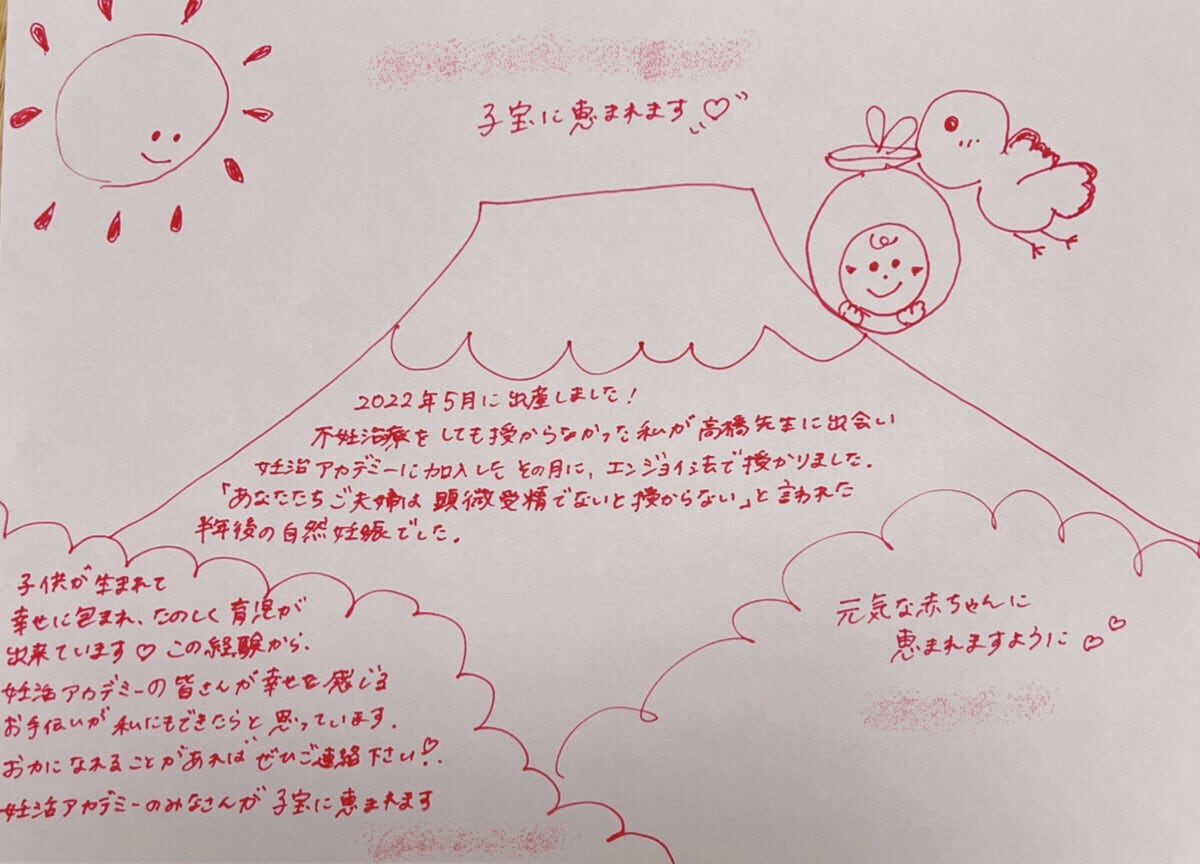 子宝に恵まれます♡
2022年5月に出産しました！
不妊治療をしても授からなかった私が高橋先生に出会い
妊活アカデミーに加入したその月に、エンジョイ法で授かりました。
「あなたたちご夫婦は顕微受精でないと授からない」と言われた
半年後の自然妊娠でした。
子供が生まれて
幸せに包まれ、たのしく育児が
出来ています♡この経験から、
妊活アカデミーの皆さんが幸せを感じる
お手伝いが私にもできたらと思っています。
お力になれることがあればぜひご連絡下さい♡
妊活アカデミーのみなさんが子宝に恵まれます
元気な赤ちゃんに
恵まれますように♡♡